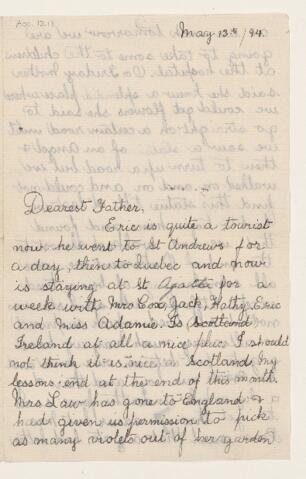 May 13th/94.
Dearest Father,
Eric is quite a tourist
now he went to St Andrews for
a day, then to Quebec and now
is staying at St Agathe for a
week with Mrs Cox, Jack, Katty, Eric
and Miss Adamie. Is Scotland
Ireland at all a nice place I should
not think it is nice Scotland. My
lessons end at the end of this month.
Mrs Law has gone to England &
had given us permission to pick
as many violets out of her garden